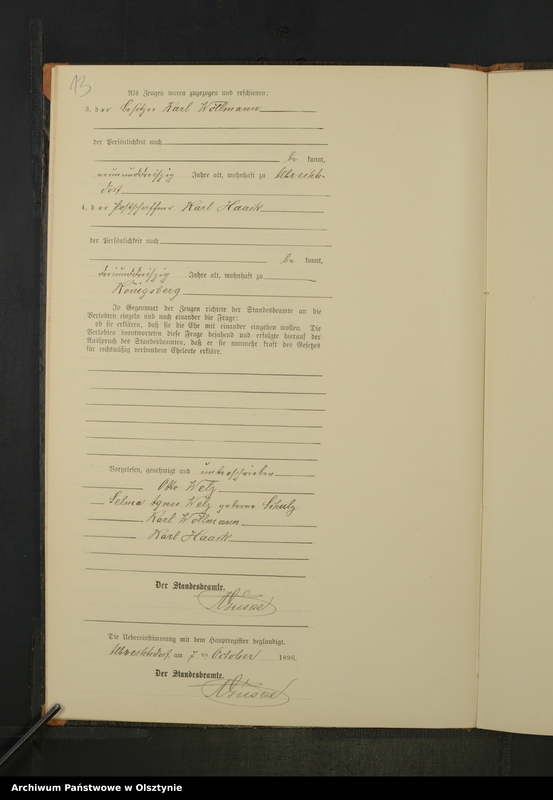 13
Als Zeugen waren zugezogen und erschienen:
3. der Besitzer Karl Wöllmann
der Persönlichkeit nach
be kannt,
neununddreißig Jahre alt, wohnhaft zu Albrechts-
dorf
4. der Postschaffner Karl Haack
der Persönlichkeit nach
be kannt,
dreiunddreißig Jahre alt, wohnhaft zu
Königsberg
In Gegenwart der Zeugen richtete der Standesbeamte an die
Verlobten einzeln und nach einander die Frage:
ob sie erklären, daß sie die Ehe mit einander eingehen wollen. Die
Verlobten beantworteten diese Frage bejahend und erfolgte hierauf der
Ausspruch des Standesbeamten, daß er sie nunmehr kraft des Gesetzes
für rechtmäßig verbundene Eheleute erkläre.
Vorgelesen, genehmigt und unterschrieben
Otto Welz
Selma Agnes Welz geborene Schulz
Karl Wöllmann
Karl Haack
Der Standesbeamte.
Die Uebereinstimmung mit dem Hauptregister beglaubigt.
Albrechtsdorf, am 7 ten October 1896.
Der Standesbeamte.
Archiwum Państwowe w Olsztynie